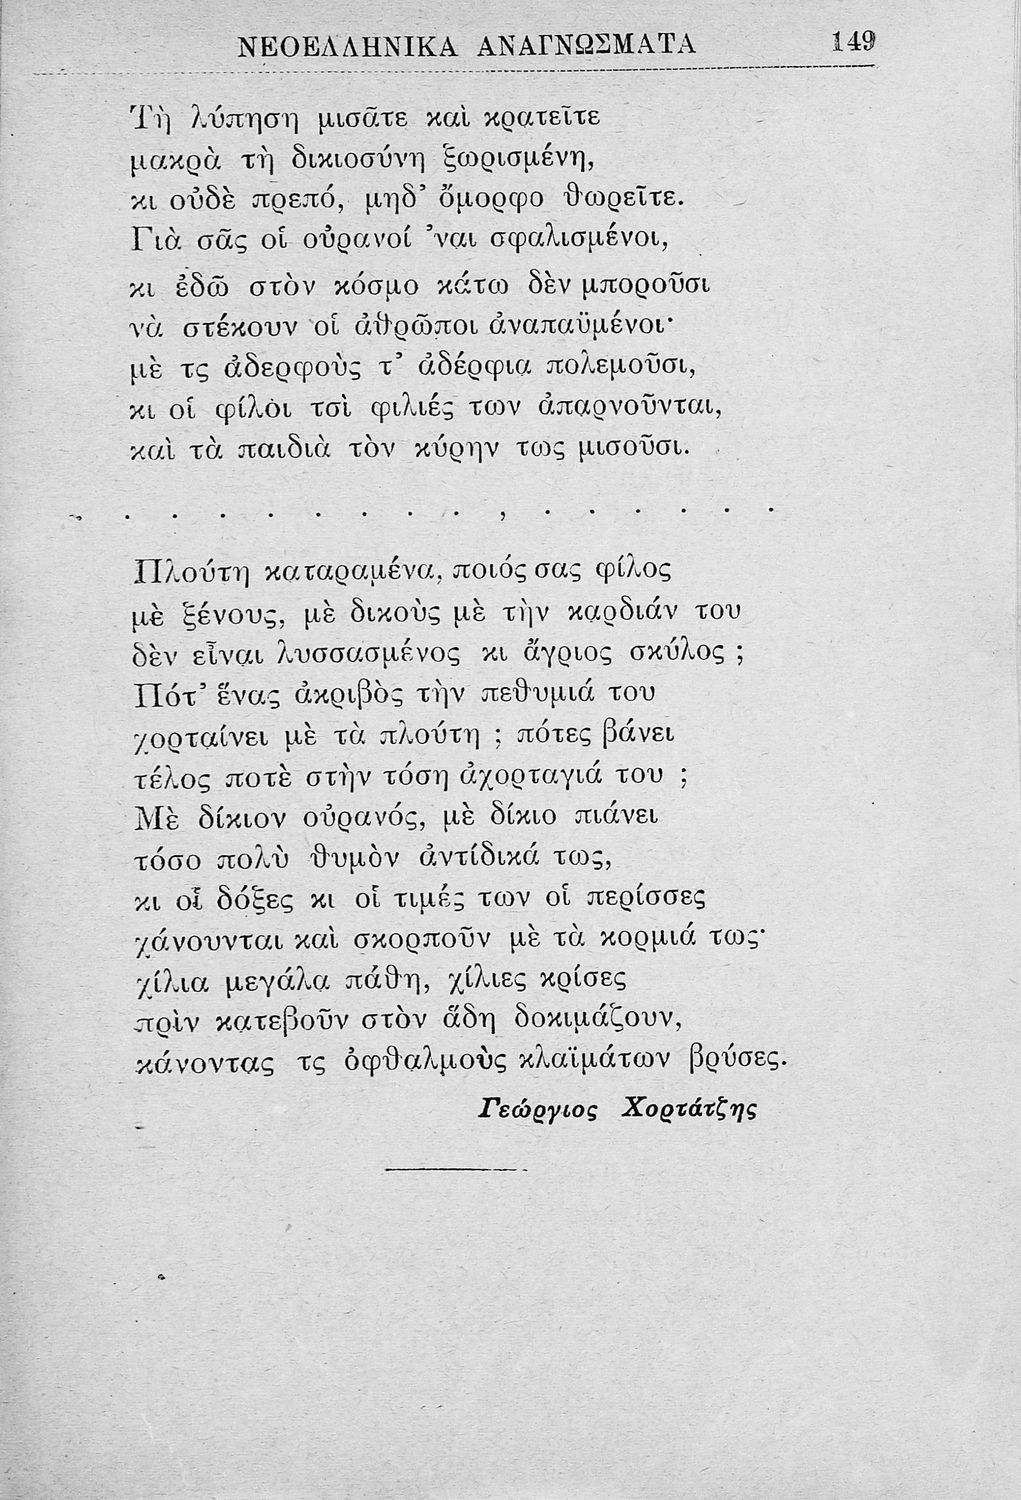 ΝΕΟΕΛΛΗΝΙΚΑ ΑΝΑΓΝΩΣΜΑΤΑ 149
Τὴ λύπηση μισᾶτε καὶ κρατεῖτε
μακρὰ τὴ δικιοσύνη ξωρισμένη,
κι οὐδὲ πρεπό, μηδ’ ὄμορφο θωρεῖτε.
Γιὰ σᾶς οἱ οὐρανοί ’ναι σφαλισμένοι,
κι ἐδῶ στὸν κόσμο κάτω δὲν μποροῦσι
νὰ στέκουν οἱ ἀθρῶποι ἀναπαϋμένοι·
μὲ τς ἀδερφοὺς τ’ ἀδέρφια πολεμοῦσι,
κι οἱ φίλοι τσὶ φιλιές των ἀπαρνοῦνται,
καὶ τὰ παιδιὰ τὸν κύρην τως μισοῦσι.
. . . . . . . . , . . . . . .
Πλούτη καταραμένα, ποιός σας φίλος
μὲ ξένους, μὲ δικοὺς μὲ τὴν καρδιάν του
δὲν εἶναι λυσσασμένος κι ἄγριος σκύλος ;
Πότ’ ἕνας ἀκριβὸς τὴν πεθυμιά του
χορταίνει μὲ τὰ πλούτη ; πότες βάνει
τέλος ποτὲ στὴν τόση ἀχορταγιά του ;
Μὲ δίκιον οὐρανός, μὲ δίκιο πιάνει
τόσο πολὺ θυμὸν ἀντίδικά τως,
κι οἱ δόξες κι οἱ τιμές των οἱ περίσσες
χάνουνται καὶ σκορποῦν μὲ τὰ κορμιά τως·
χίλια μεγάλα πάθη, χίλιες κρίσες
πρὶν κατεβοῦν στὸν ἅδη δοκιμάζουν,
κάνοντας τς ὀφθαλμοὺς κλαϊμάτων βρύσες.
Γεώργιος Χορτάτζης